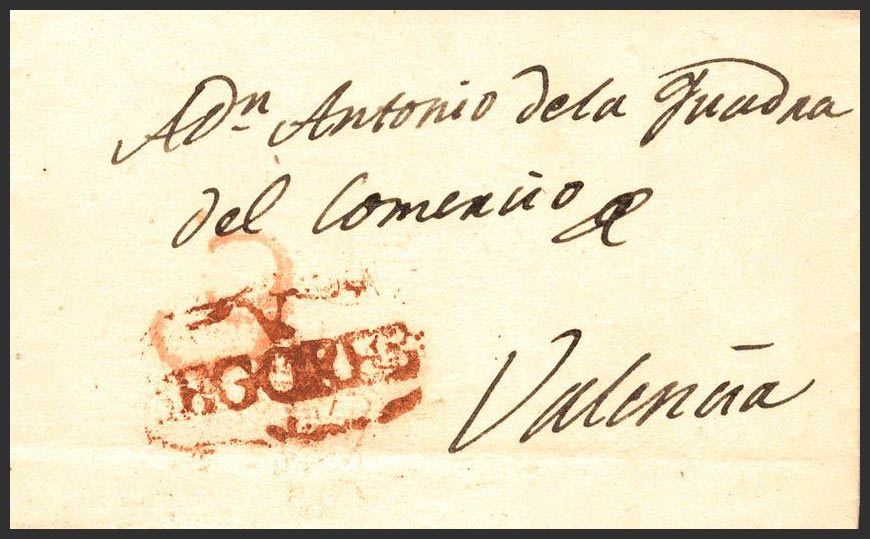 A Dn Antonio dela Quadra
del Comercio
Valencia